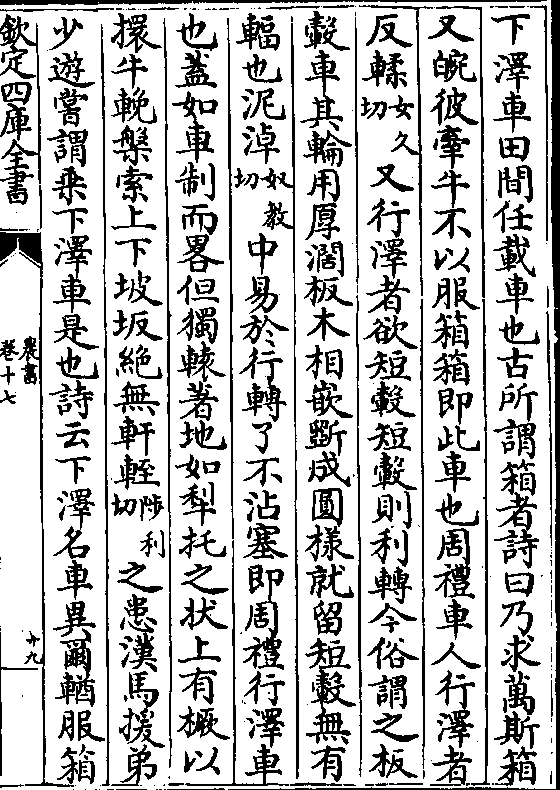 下澤車田間任載車也古所謂箱者詩曰乃求萬斯箱
又睆彼牽牛不以服箱箱即此車也周禮車人行澤者
反輮女久切又行澤者欲短轂短轂則利轉今俗謂之板
轂車其輪用厚濶板木相嵌斲成圓樣就留短轂無有
輻也泥淖奴教切中易於行轉了不沾塞即周禮行澤車
也蓋如車制而畧但獨轅著地如犁托之狀上有橛以
擐牛輓槃索上下坡坂絶無軒輊陟利切之患漢馬援弟
少遊嘗謂乗下澤車是也詩云下澤名車異爾輶服箱
欽定四庫全書
農書
卷十七
十九